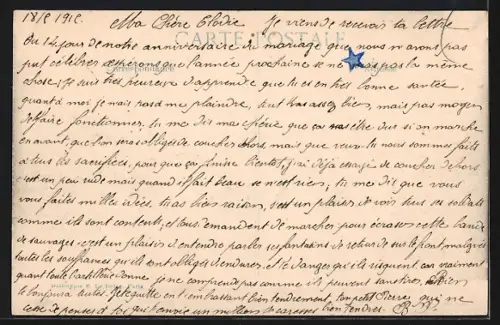 18/8 191 Ma Chère Elodie Je viens de recevoir ta lettre
CARTE POSTALE
Correspondance
du 12 jour de notre anniversaire de mariage que nous n'avons pas
put célébrer espérons que l'année prochaine se ne sera pas la même
chose, je suis très heureux d'apprendre que tu es en très bonne santée,
quant à moi je n'ais pas a me plaindre, tout va assez bien, mais pas moyen
d'faire fonctionner, tu me dis ma chérie que ça va être dur si on marche
en avant, que l'on sera obligés de coucher dehors, mais que veux-tu nous sommes faits
a tous les sacrifices, pour que ça finisse bientôt, j'ai déjà essayé de coucher dehors
c'est un peu rude mais quand il fait beau se n'est rien; tu me dit que vous
vous faites milles idées, tu as bien raison, c'est un plaisir de voir tous ses soldats
comme ils sont contents, et tous demandent de marcher pour écraser cette bande
de sauvages c'est un plaisir d'entendre parler ses fantassins de retour de sur le front, malgrés
toutes les souffrances qu'ils sont obligés d'endurer, et le danger qu'ils risquent, car vraiment
quant toute l'artillerie donne je ne comprends pas comme ils peuvent
Rien
le bonjour a tutes Je te quitte en t'embrassant bien tendrement, ton petit Pierre qui ne
cesse de penser a toi qui t'envoie un million de caresses bien tendres.